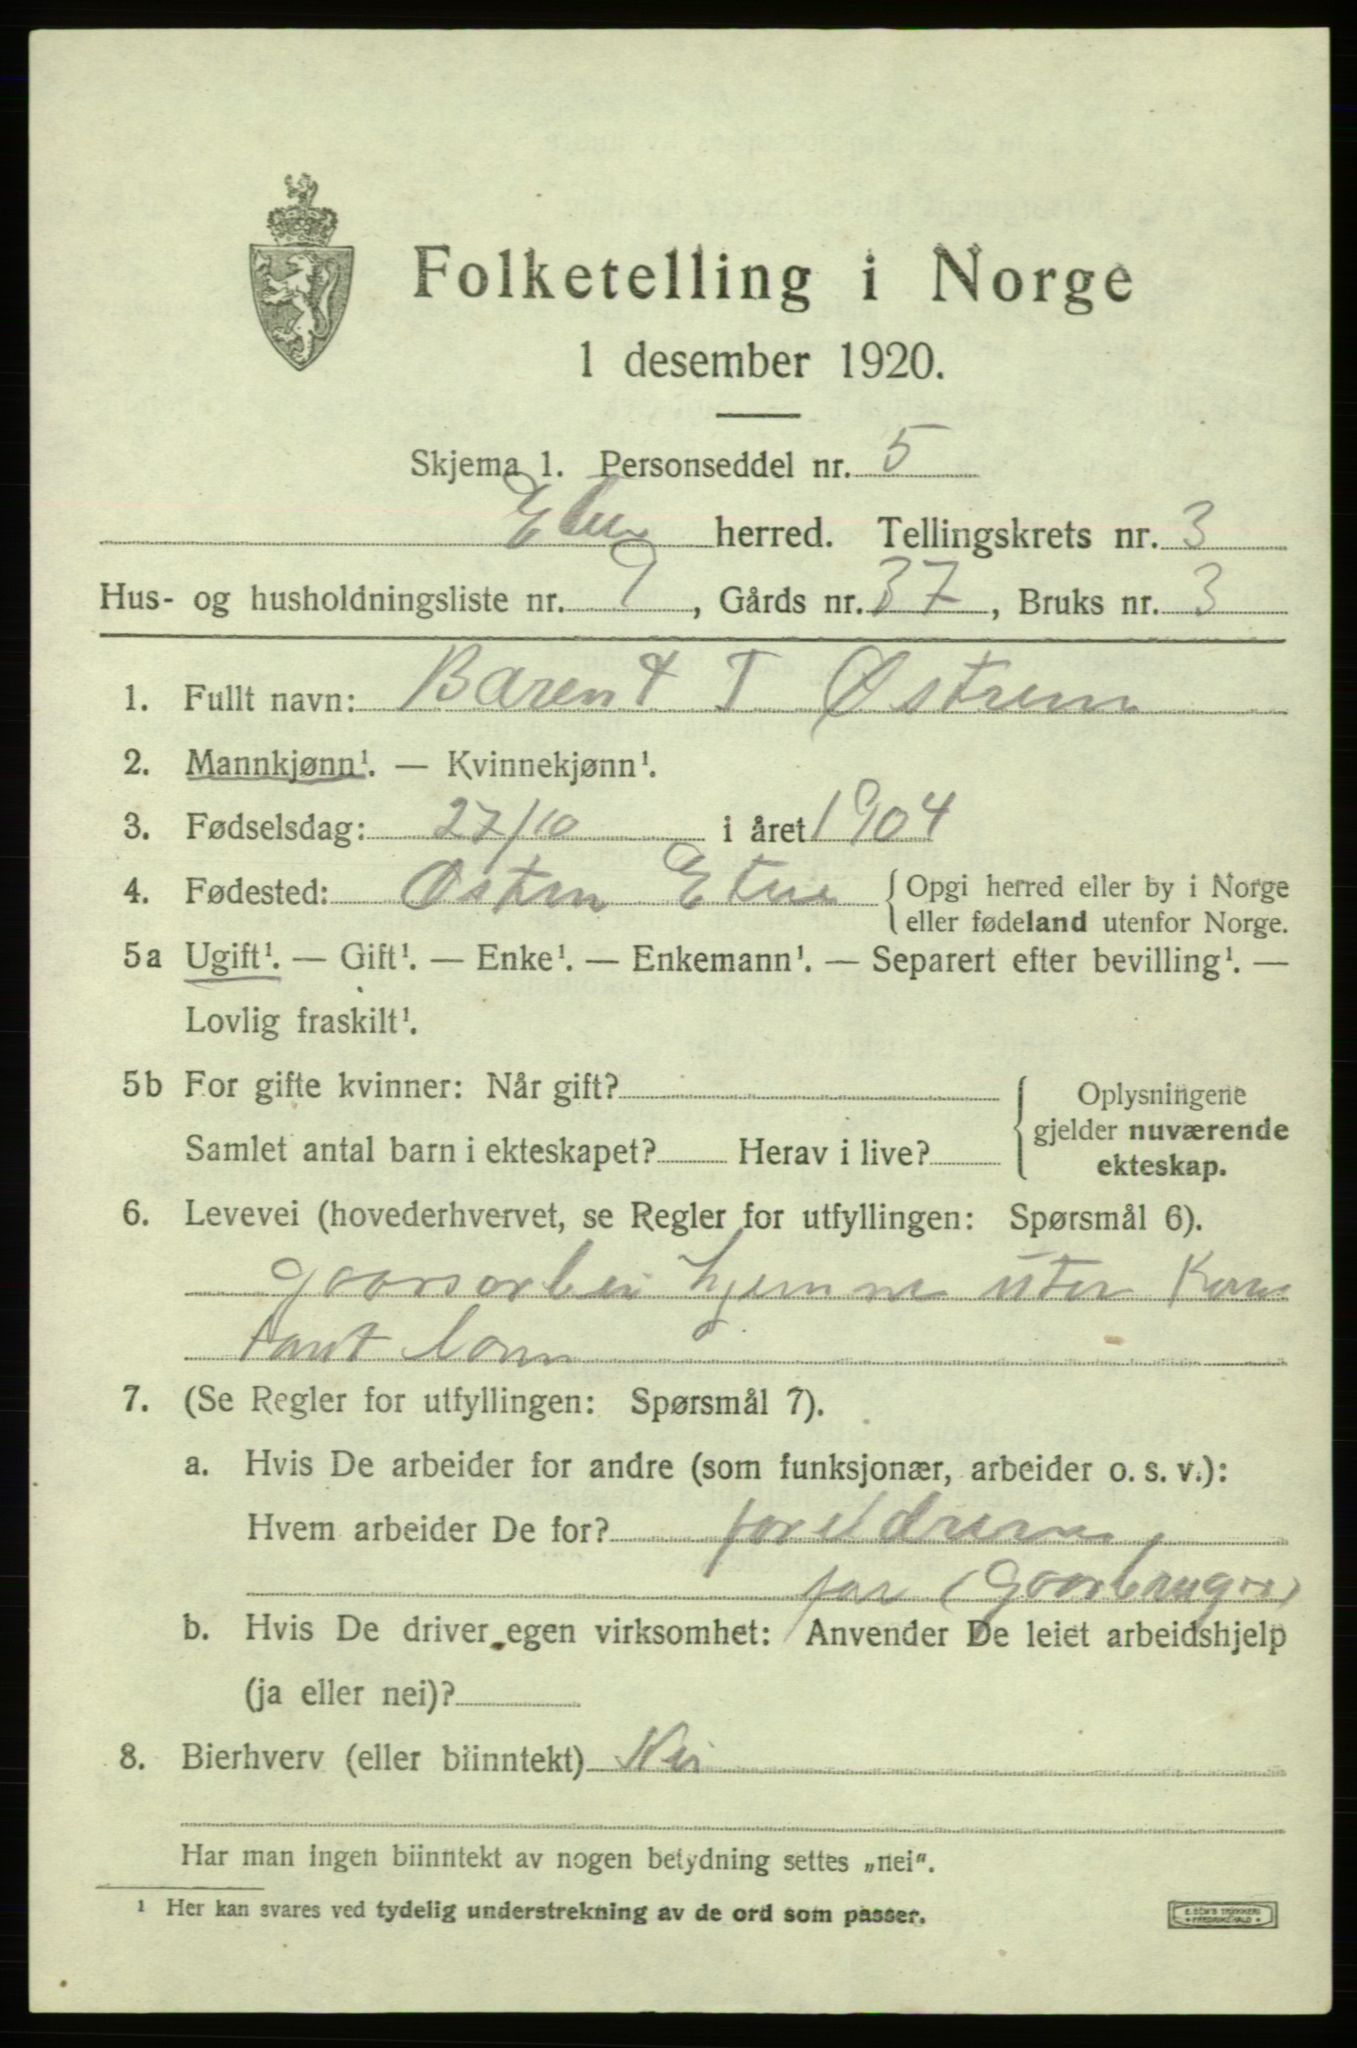 Folketelling i Norge
1 desember 1920.
Skjema 1. Personseddel nr. 5
Etne herred. Tellingskrets nr. 3
Hus- og husholdningsliste nr. 9, Gårds nr. 37, Bruks nr. 3
1. Fullt navn: Barent T Østrem
2. Mannkjønn¹. — Kvinnekjønn¹.
3. Fødselsdag: 27/10 i året 1904
4. Fødested: Østrem Etne { Opgi herred eller by i Norge
eller fødeland utenfor Norge.
5a Ugift¹. — Gift¹. — Enke¹. — Enkemann¹. — Separert efter bevilling¹. —
Lovlig fraskilt¹.
5b For gifte kvinner: Når gift? { Oplysningene
gjelder nuværende
Samlet antal barn i ekteskapet? Herav i live? ekteskap.
6. Levevei (hovederhvervet, se Regler for utfyllingen: Spørsmål 6).
goorsarbei hjemme uten Kons
tant lønn
7. (Se Regler for utfyllingen: Spørsmål 7).
a. Hvis De arbeider for andre (som funksjonær, arbeider o. s. v.):
Hvem arbeider De for? foreldrene,
far (Goorbruger)
b. Hvis De driver egen virksomhet: Anvender De leiet arbeidshjelp
(ja eller nei)?
8. Bierhverv (eller biinntekt) Nei
Har man ingen biinntekt av nogen betydning settes „nei“.
¹ Her kan svares ved tydelig understrekning av de ord som passer.